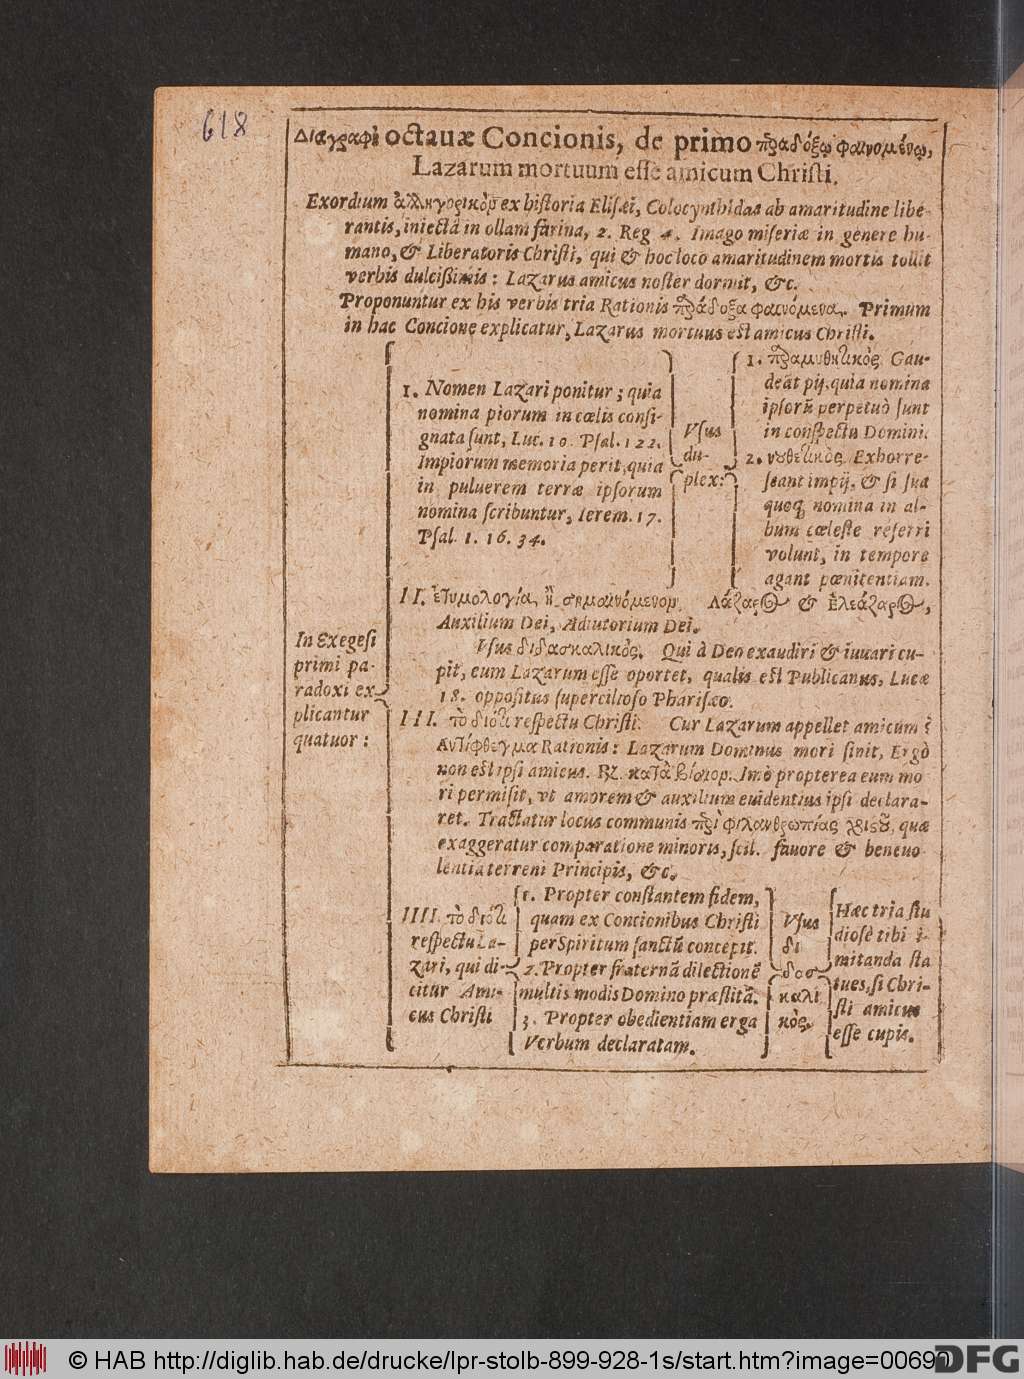 618
Διαγραφὴ octauæ Concionis, de primo παραδόξῳ φαινομένῳ,
Lazarum mortuum eſſe amicum Chriſti.
Exordium ἀλληγορικὸν ex hiſtoria Eliſæi, Colocynthidas ab amaritudine libe-
rantis, iniectâ in ollam farina, 2. Reg 4. Imago miſeriæ in genere hu-
mano, & Liberatoris Chriſti, qui & hoc loco amaritudinem mortis tollit
verbis dulciſsimis: Lazarus amicus noſter dormit, &c.
Proponuntur ex his verbis tria Rationis παράδοξα φαινόμενα. Primum
in hac Concione explicatur, Lazarus mortuus eſt amicus Chriſti.
In Exegeſi
primi pa-
radoxi ex-
plicantur
quatuor:
1. Nomen Lazari ponitur; quia
nomina piorum in cœlis conſi-
gnata ſunt, Luc. 10. Pſal. 122.
Impiorum memoria perit, quia
in puluerem terræ ipſorum
nomina ſcribuntur, Ierem. 17.
Pſal. 1. 16. 34.
Vſus
du-
plex:
1. παραμυθητικὸς. Gau-
deāt pij, quia nomina
ipſorū perpetuò ſunt
in conſpectu Domini.
2. νουθετικὸς. Exhorre-
ſcant impij, & ſi ſua
quoq; nomina in al-
bum cœleſte referri
volunt, in tempore
agant pœnitentiam.
II. ἐτυμολογία, ἢ σημαινόμενον. Λάζαρος & Ἐλεάζαρος,
Auxilium Dei, Adiutorium Dei.
Vſus διδασκαλικὸς. Qui à Deo exaudiri & iuuari cu-
pit, eum Lazarum eſſe oportet, qualis eſt Publicanus, Lucæ
18. oppoſitus ſupercilioſo Phariſæo.
III. τὸ διότι reſpectu Chriſti. Cur Lazarum appellet amicum?
Ἀντίφθεγμα Rationis: Lazarum Dominus mori ſinit, Ergò
non eſt ipſi amicus. ℞. κατὰ βίαιον. Imò propterea eum mo
ri permiſit, vt amorem & auxilium euidentius ipſi declara-
ret. Tractatur locus communis περὶ φιλανθρωπίας χριστοῦ, quæ
exaggeratur comparatione minoris, ſcil. fauore & beneuo
lentia terreni Principis, &c.
IIII. τὸ διότι
reſpectu La-
zari, qui di-
citur Ami-
cus Chriſti
1. Propter conſtantem fidem,
quam ex Concionibus Chriſti
per Spiritum ſanctū concepit.
2. Propter fraternā dilectionē
multis modis Domino præſtitā.
3. Propter obedientiam erga
Verbum declaratam.
Vſus
δι
δασ
καλι
κὸς.
Hæc tria ſtu
dioſè tibi i-
mitanda ſta
tues, ſi Chri-
ſti amicus
eſſe cupis.
© HAB http://diglib.hab.de/drucke/lpr-stolb-899-928-1s/start.htm?image=00690
DFG